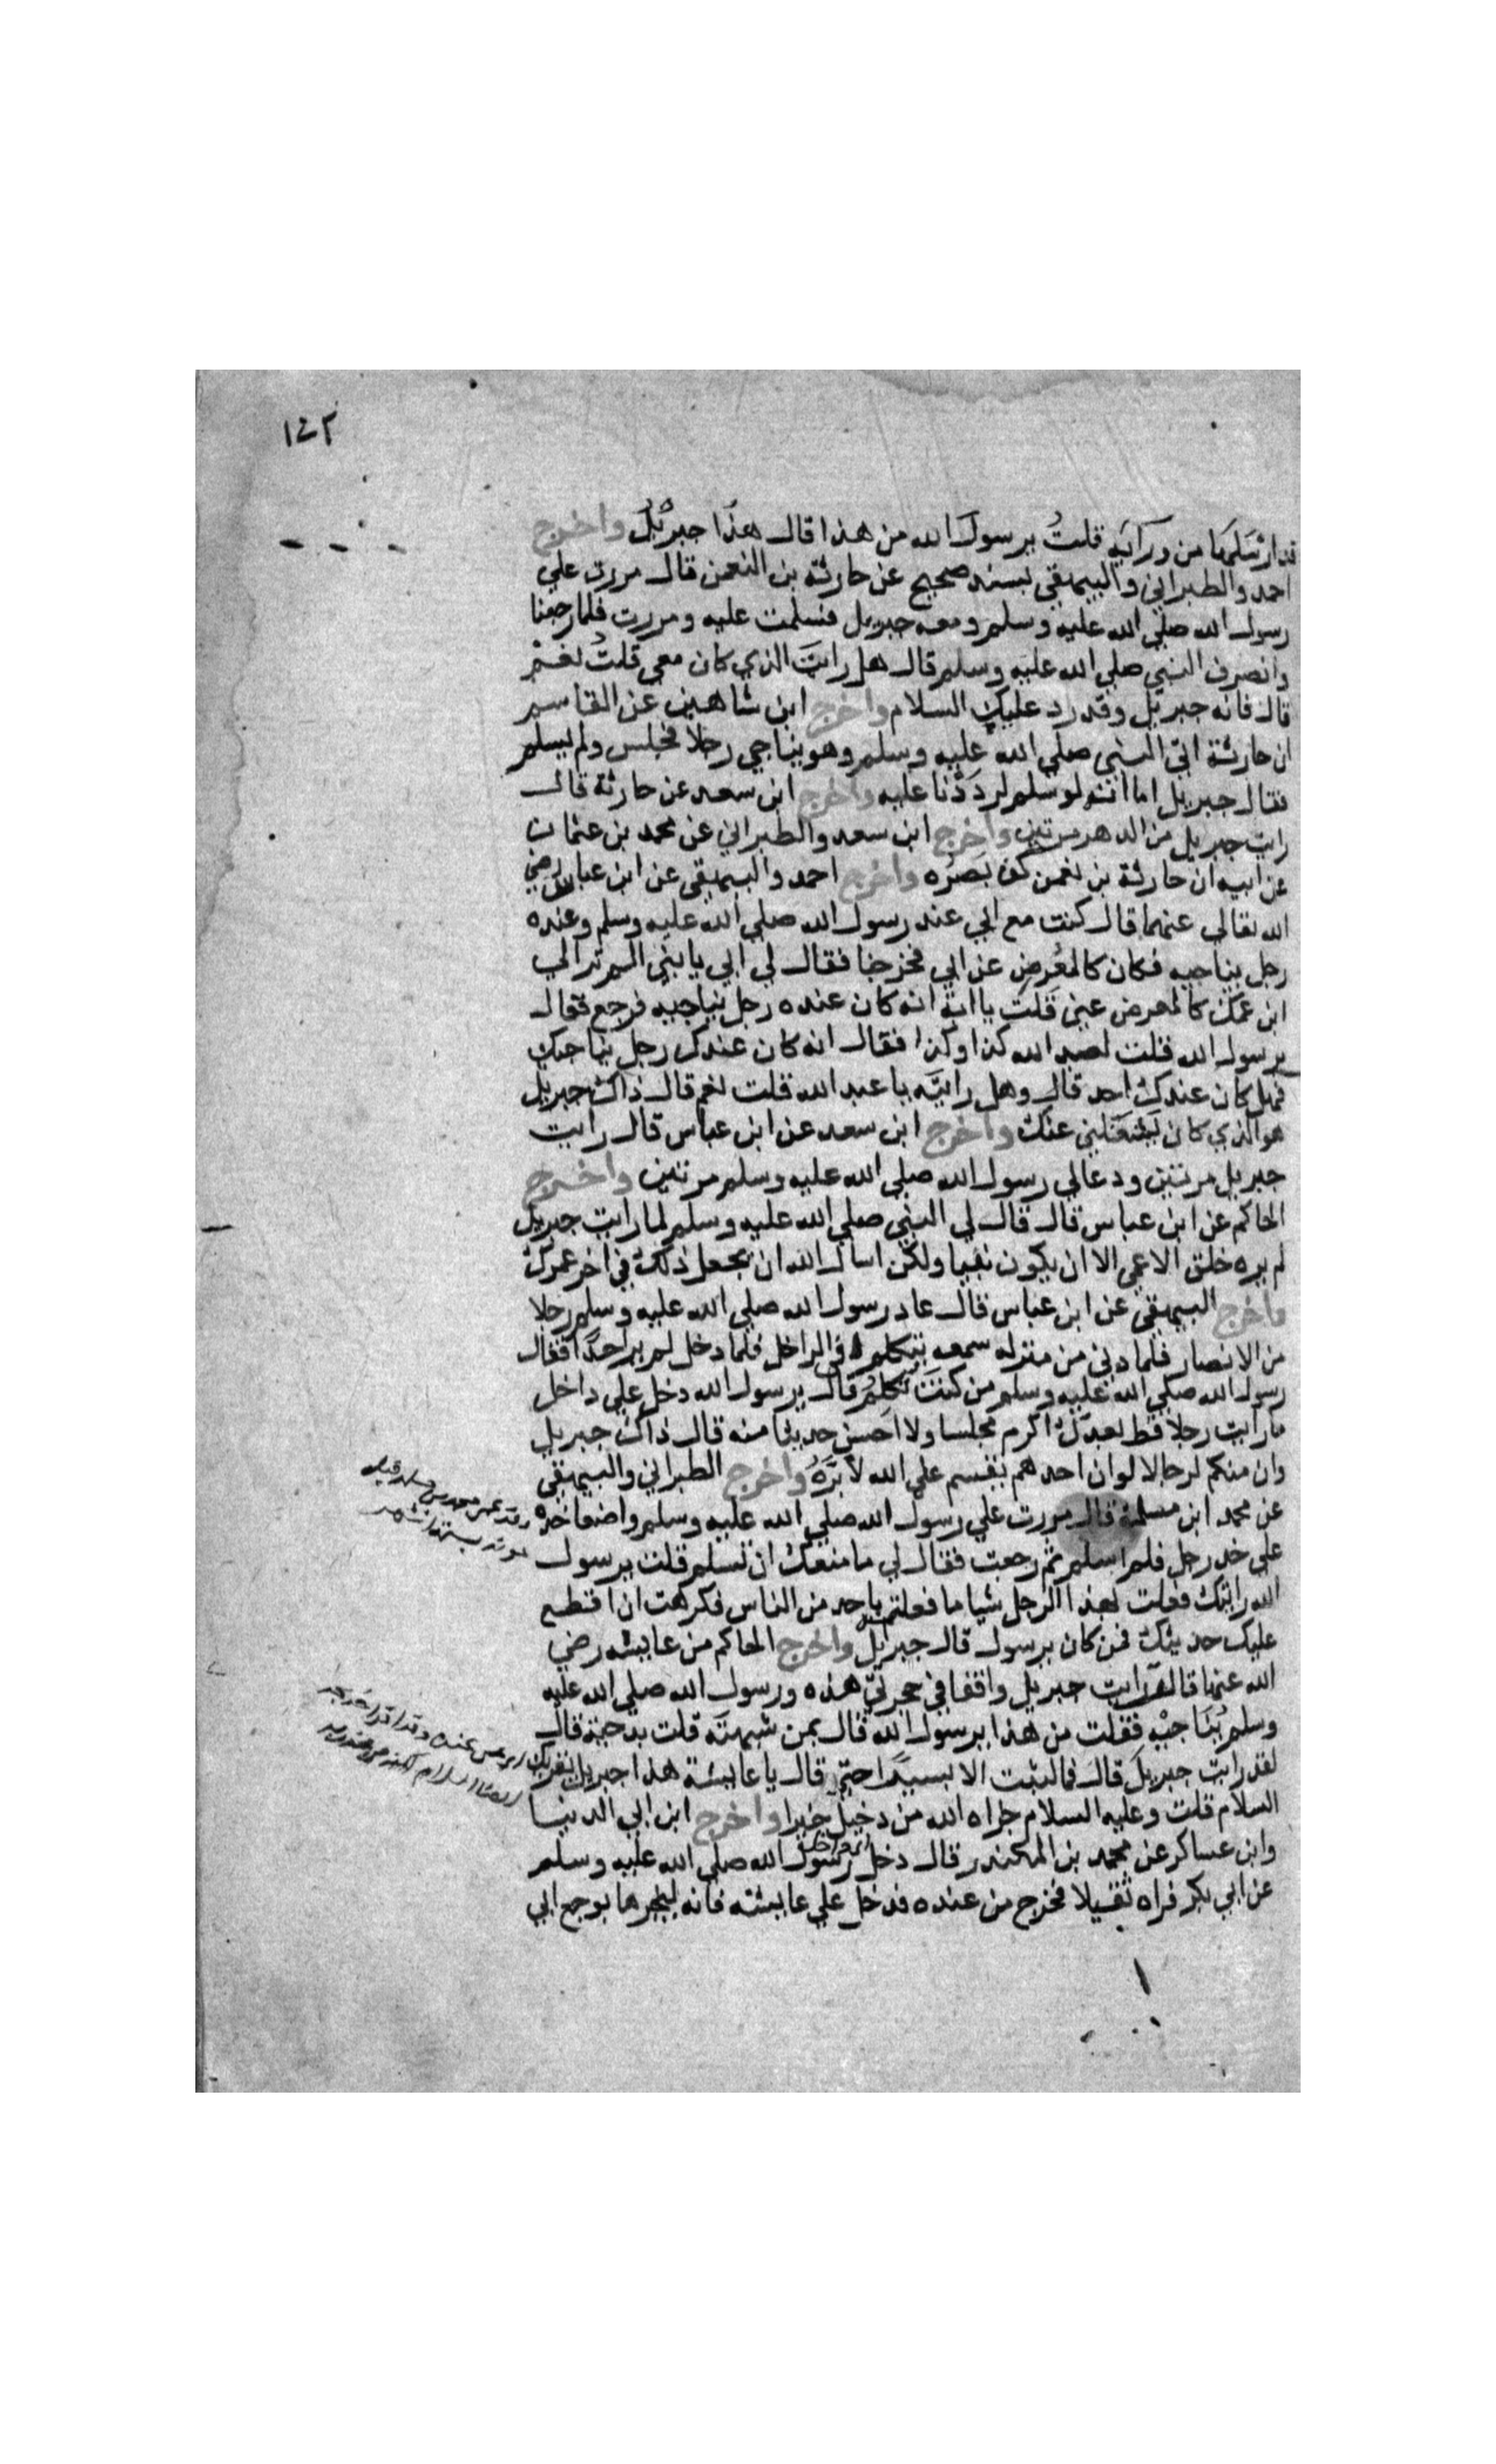 ١٤٣
قد ارسلها من ورائه قلتُ يرسول الله من هذا قال هذا جبريل واخرج
احمد والطبراني والبيهقي بسند صحيح عن حارثة بن النعمن قال مررت علي
رسول الله صلي الله عليه وسلم ومعه جبريل فسلمت عليه ومررت فلما رجعنا
وانصرف النبي صلي الله عليه وسلم قال هل رايتَ الذي كان معي قلتُ نعم
قال فانه جبريل وقد رد عليك السلام واخرج ابن شاهين عن القاسم
ان حارثة اتي النبي صلي الله عليه وسلم وهو يناجي رجلا فجلس ولم يسلم
فقال جبريل اما انه لو سلم لرددنا عليه واخرج ابن سعد عن حارثة قال
رايت جبريل من الدهر مرتين واخرج ابن سعد والطبراني عن محمد بن عثمان
عن ابيه ان حارثة بن نعمن كف بصره واخرج احمد والبيهقي عن ابن عباس رضي
الله تعالي عنهما قال كنت مع ابي عند رسول الله صلي الله عليه وسلم وعنده
رجل يناجيه فكان كالمعرض عن ابي فخرجنا فقال لي ابي يا بني الم تر الي
ابن عمك كالمعرض عني قلت يا ابة انه كان عنده رجل يناجيه فرجع فقال
يرسول الله قلت لعبد الله كذا وكذا فقال انه كان عندك رجل يناجيك
فهل كان عندك احد قال وهل رايته يا عبد الله قلت نعم قال ذاك جبريل
هو الذي كان يشغلني عنك واخرج ابن سعد عن ابن عباس قال رايت
جبريل مرتين ودعا لي رسول الله صلي الله عليه وسلم مرتين واخرج
الحاكم عن ابن عباس قال قال لي النبي صلي الله عليه وسلم لما رايت جبريل
لم يره خلق الا عمي الا ان يكون نبيا ولكن اسال الله ان يجعل ذلك في اخر عمرك
واخرج البيهقي عن ابن عباس قال عاد رسول الله صلي الله عليه وسلم رجلا
من الانصار فلما دني من منزله سمعه يتكلم في الداخل فلما دخل لم ير احدًا فقال
رسول الله صلي الله عليه وسلم من كنتَ تكلم قال يرسول الله دخل علي داخل
ما رايت رجلا قط بعدك اكرم مجلسا ولا احسن حديثا منه قال ذاك جبريل
وان منكم لرجالا لو ان احدهم يقسم علي الله لابَرَّهُ واخرج الطبراني والبيهقي
عن محمد ابن مسلمة قال مررت علي رسول الله صلي الله عليه وسلم واضعا خده
علي خد رجل فلم اسلم ثم رجعت فقال لي ما منعك ان تسلم قلت يرسول
الله رايتك فعلت بهذا الرجل شيا ما فعلته باحد من الناس فكرهت ان اقطع
عليك حديثك فمن كان يرسول قال جبريل واخرج الحاكم من عايشه رضي
الله عنها قالت رايت جبريل واقفا في حجرتي هذه ورسول الله صلي الله عليه
وسلم يُناجيه فقلت من هذا يرسول الله قال بمن شبهته قلت بدحية قال
لقد رايت جبريل قال فما لبثت الا يسيرًا حتي قال يا عايشة هذا جبريل يقريك
السلام قلت وعليه السلام جزاه الله من دخيل خيرا واخرج ابن ابي الدنيا
وابن عساكر عن محمد بن المنكندر قال دخل رسول الله صلي الله عليه وسلم
عن ابي بكر فراه ثقيلا فخرج من عنده فدخل علي عايشه فانه ليخبرها بوجع ابي